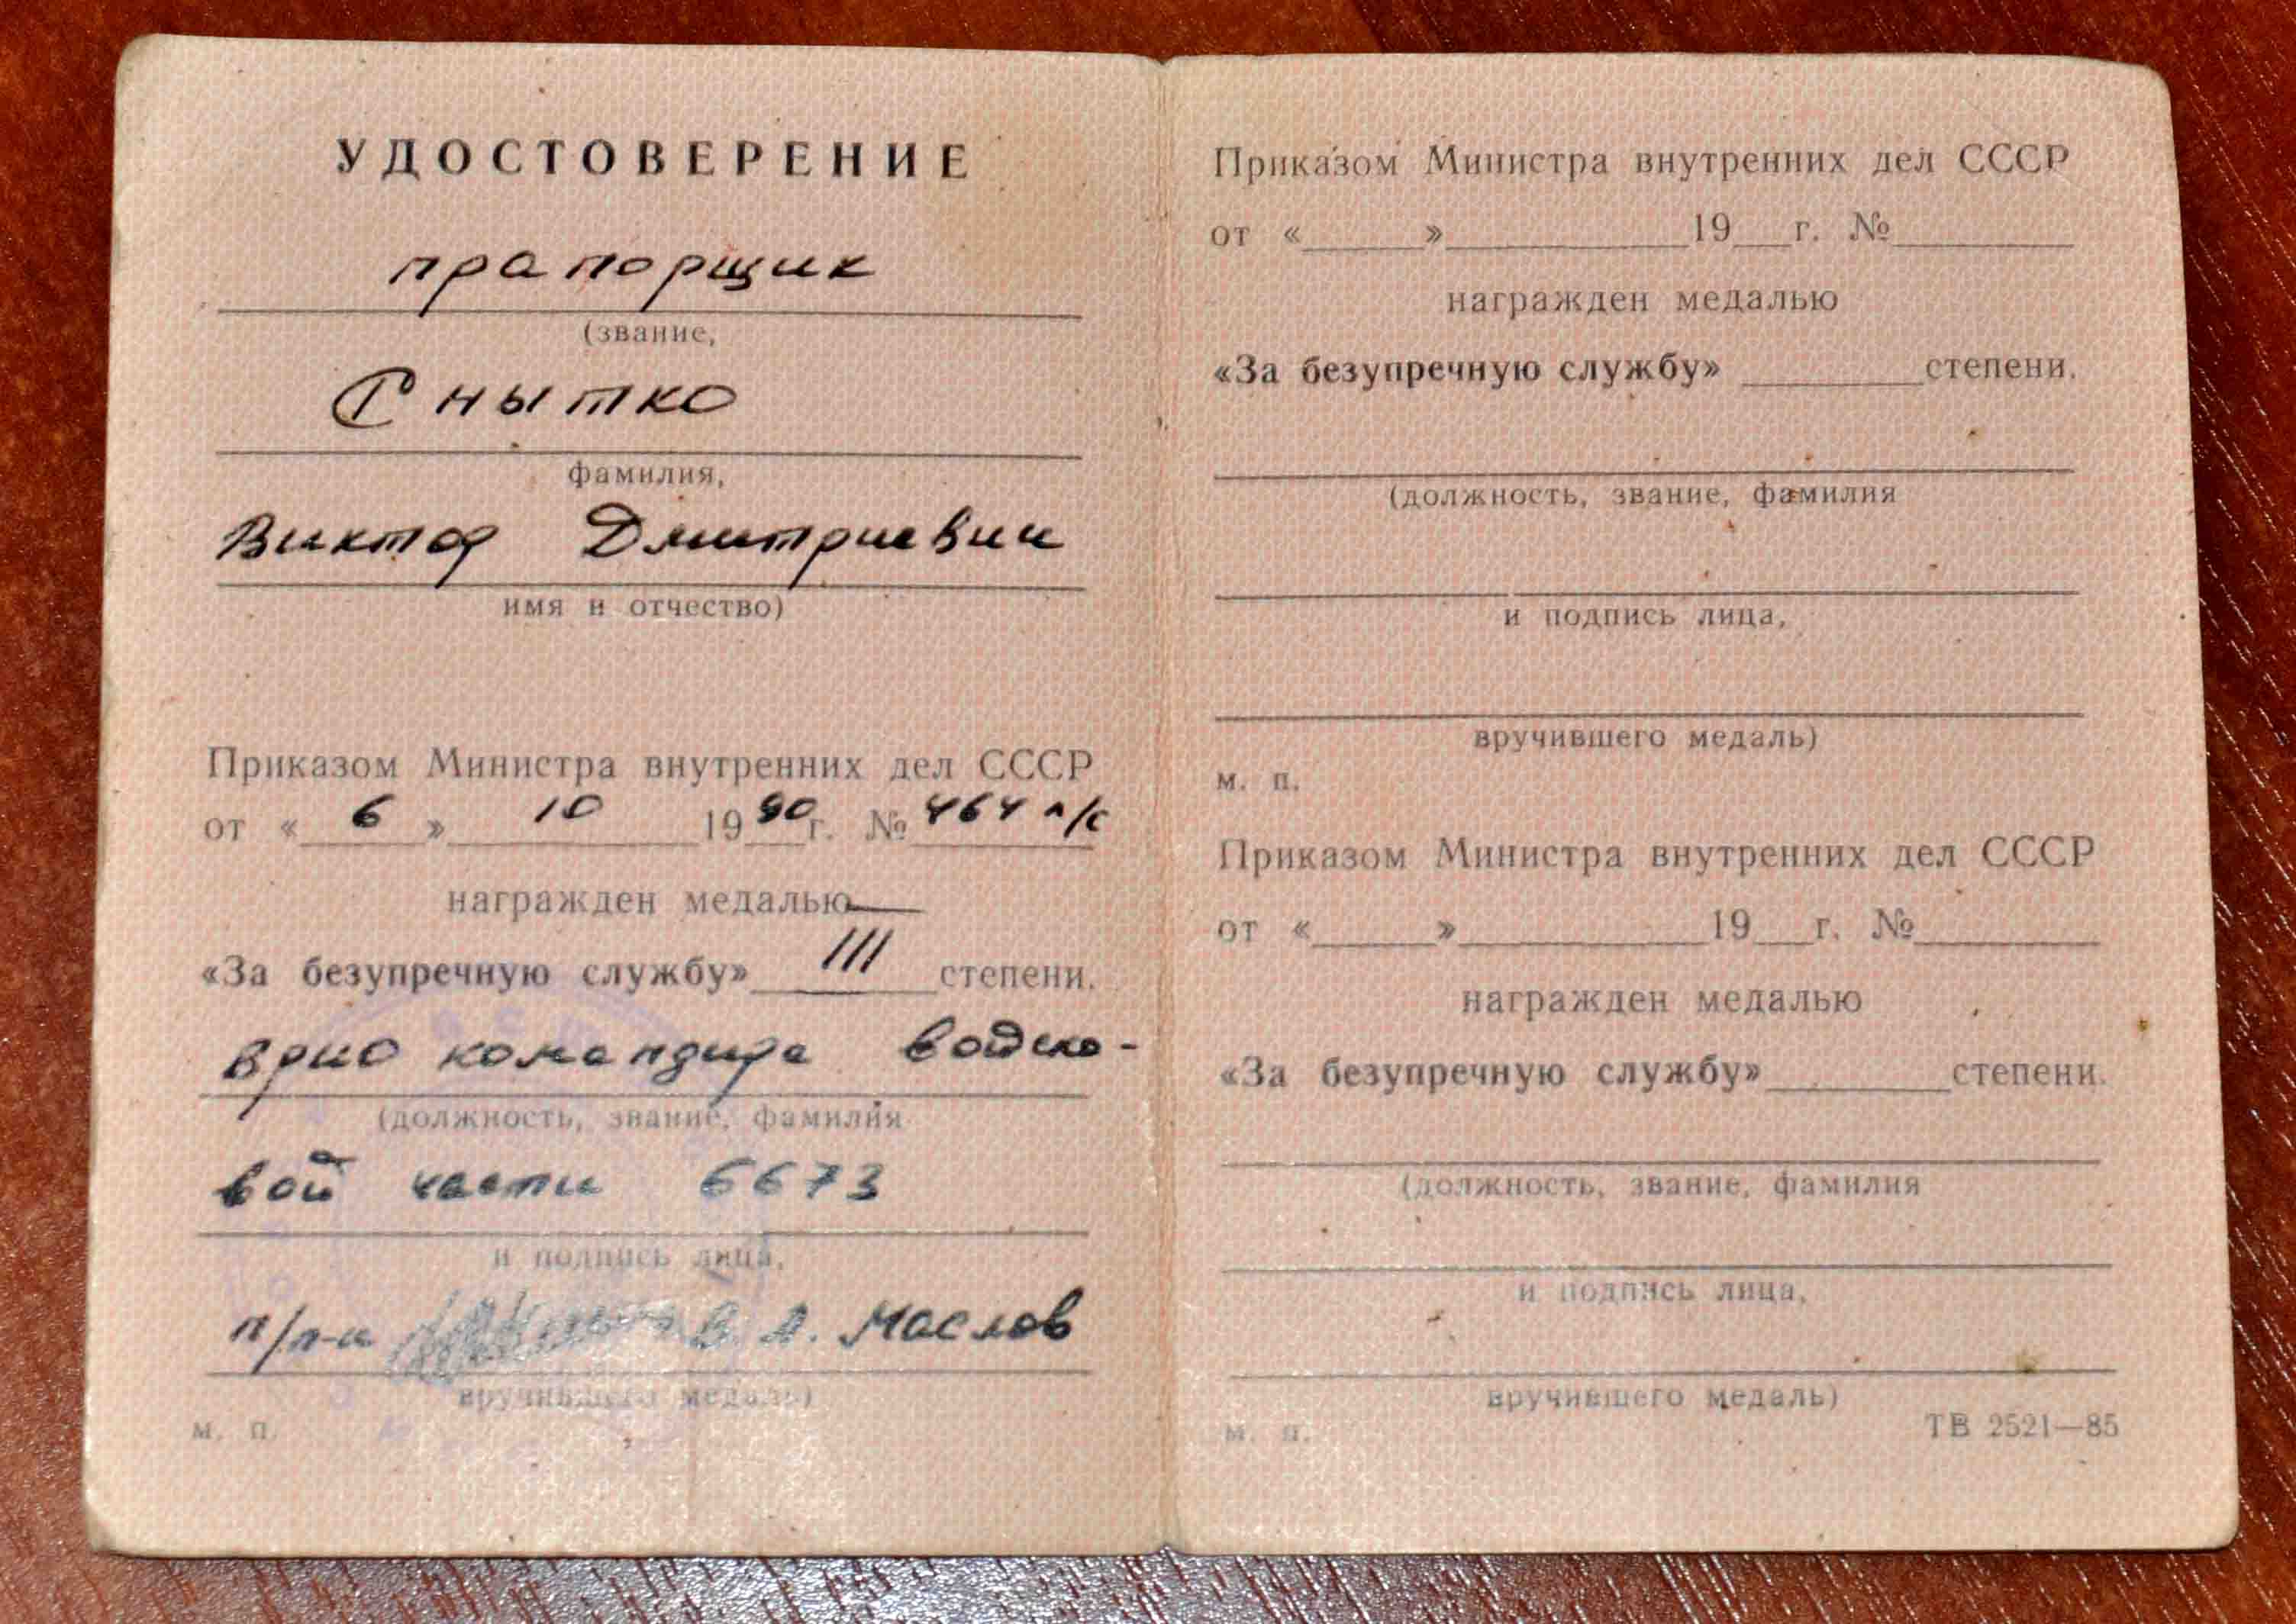 УДОСТОВЕРЕНИЕ
прапорщик
(звание,
Снытко
фамилия,
Виктор Дмитриевич
имя и отчество)
Приказом Министра внутренних дел СССР
от « 6 » 10 1990 г. № 464 л/с
награжден медалью
«За безупречную службу» III степени.
врио командира войско-
(должность, звание, фамилия
вой части 6673
и подпись лица,
п/п-к В. А. Маслов
вручившего медаль)
м. п.
Приказом Министра внутренних дел СССР
от «______»____________19___г. №_________
награжден медалью
«За безупречную службу» _________степени.
(должность, звание, фамилия
и подпись лица,
вручившего медаль)
м. п.
Приказом Министра внутренних дел СССР
от «______»____________19___г. №_________
награжден медалью
«За безупречную службу»_________степени.
(должность, звание, фамилия
и подпись лица,
вручившего медаль)
м. п. ТВ 2521—85